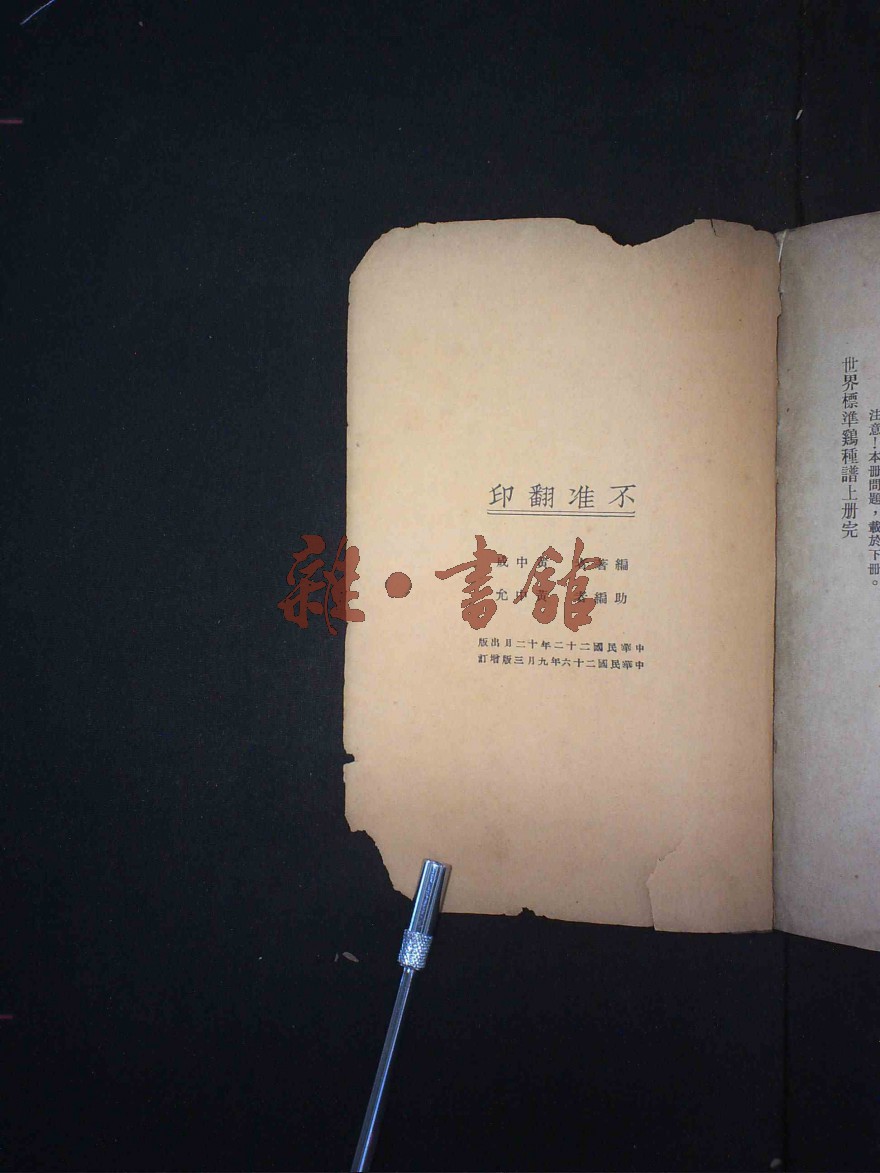 注意！本冊問題，載於下冊。
世界標準鷄種譜上册完
不准翻印
編著者 黃中成
助編者 黃中允
中華民國二十二年十二月出版
中華民國二十六年九月三版增訂
雜·書館